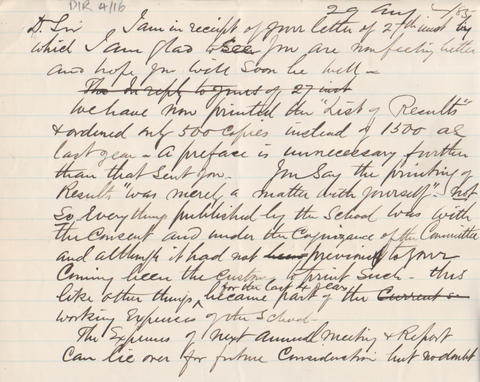 DIR 4/16
29 Aug /85
D. Sir I am in receipt of your letter of 27th inst by
which I am glad to see you are now feeling better
and hope you will soon be well –
The In reply to yours of 27 inst
We have now printed the "List of Results"
& ordered only 500 copies instead of 1500 as
last year – A preface is unnecessary further
than that sent you. You say the printing of
Results "was merely a matter with yourself" not
so, everything published by the School was with
the Consent and under the Cognizance of the Committee
and although it had not been previous to your
Coming been the custom to print such – this
like other things for the last 4 years became part of the Current
working Expenses of the School –
The Expenses of next Annual Meeting & Report
can lie over for future Consideration but no doubt